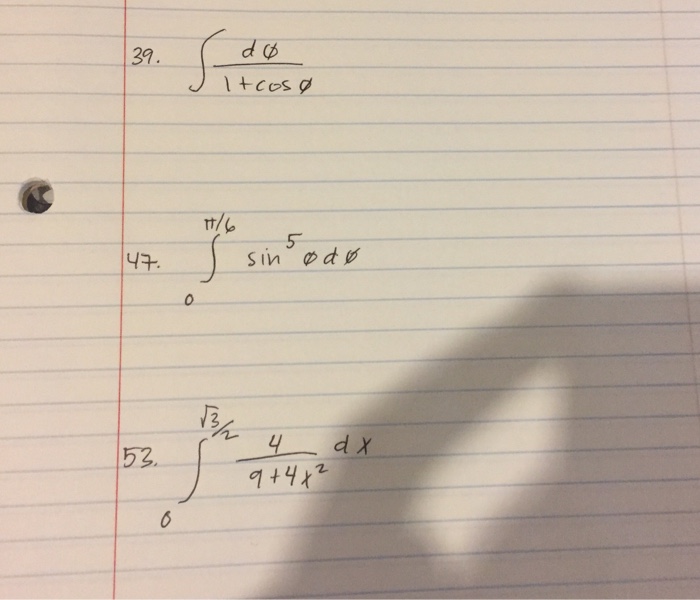 39. ∫ dφ / (1 + cos φ)
47. ∫₀^(π/6) sin⁵ φ dφ
53. ∫₀^(√3/2) 4 / (9 + 4x²) dx